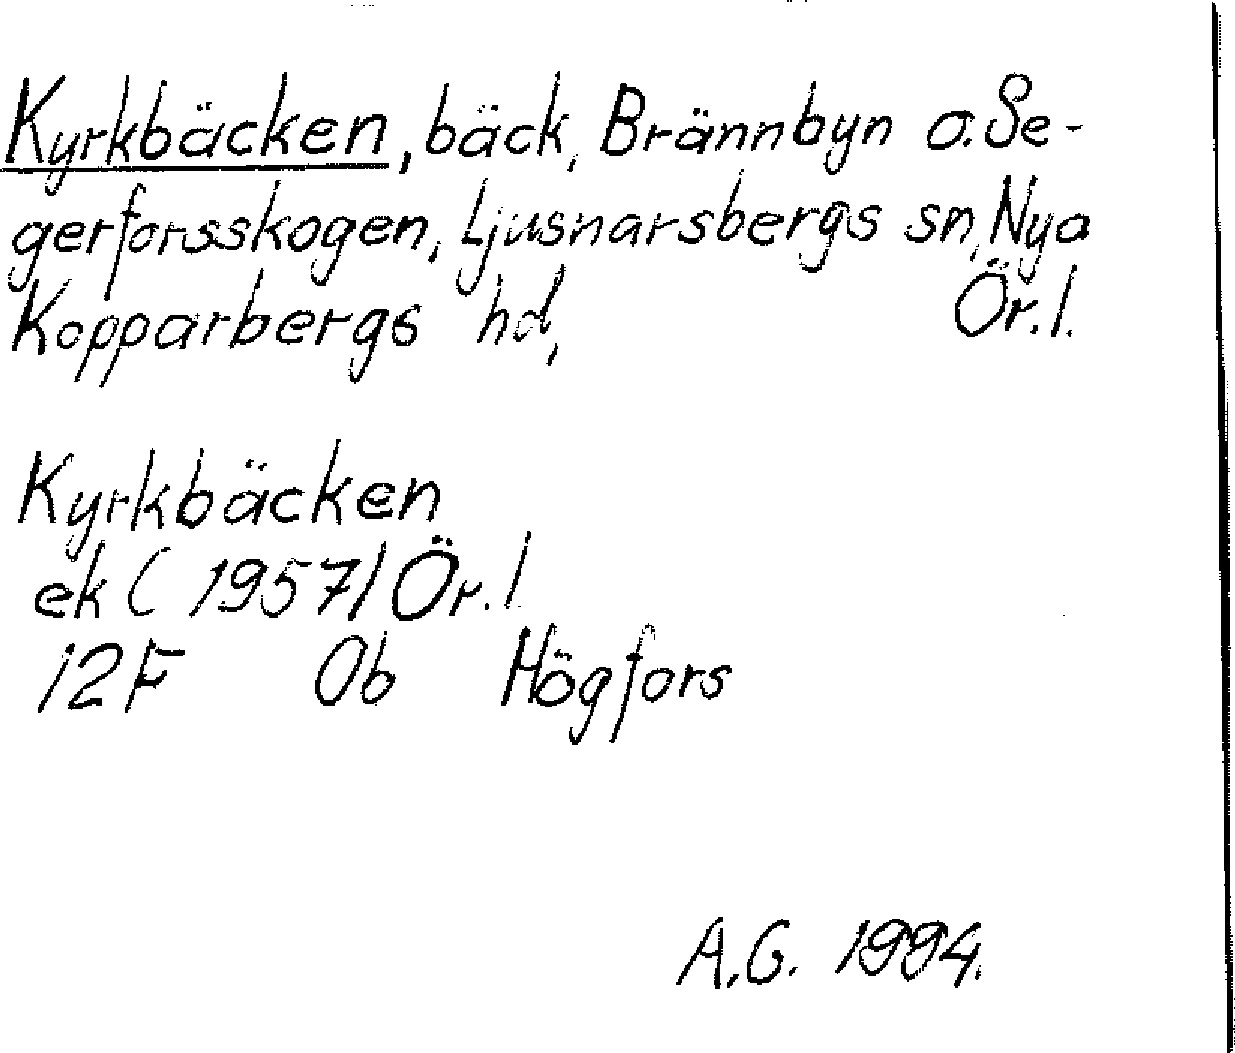 Kyrkbäcken, bäck, Brännbyn o. Se-
gerforsskogen, Ljusnarsbergs sn, Nya
Kopparbergs hd, Ör. l.
Kyrkbäcken
ek ( 1957) Ör. l
12F 0b Högfors
A.G. 1994.